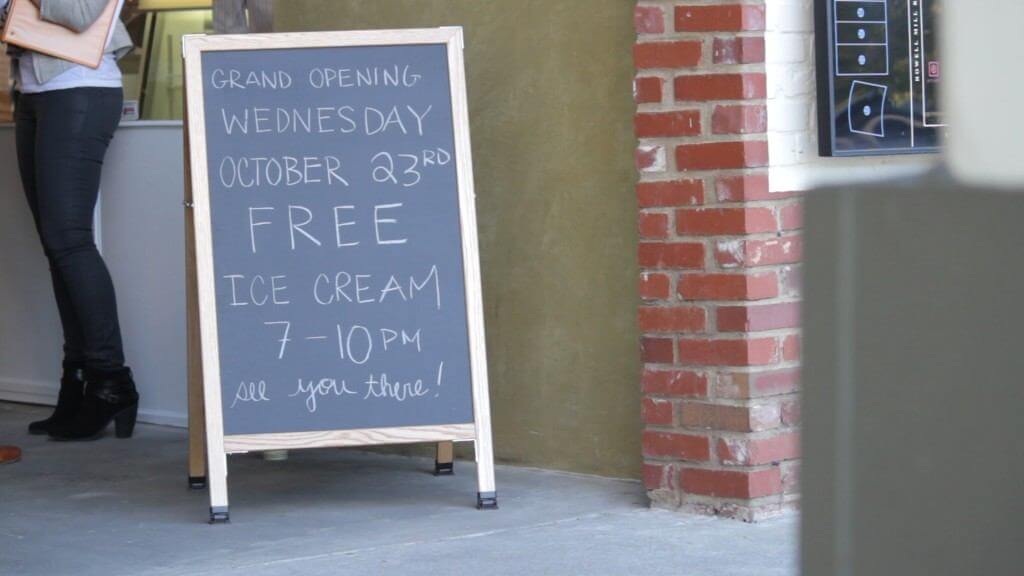 GRAND OPENING
WEDNESDAY
OCTOBER 23RD
FREE
ICE CREAM
7-10PM
see you there!
HOWELL MILL